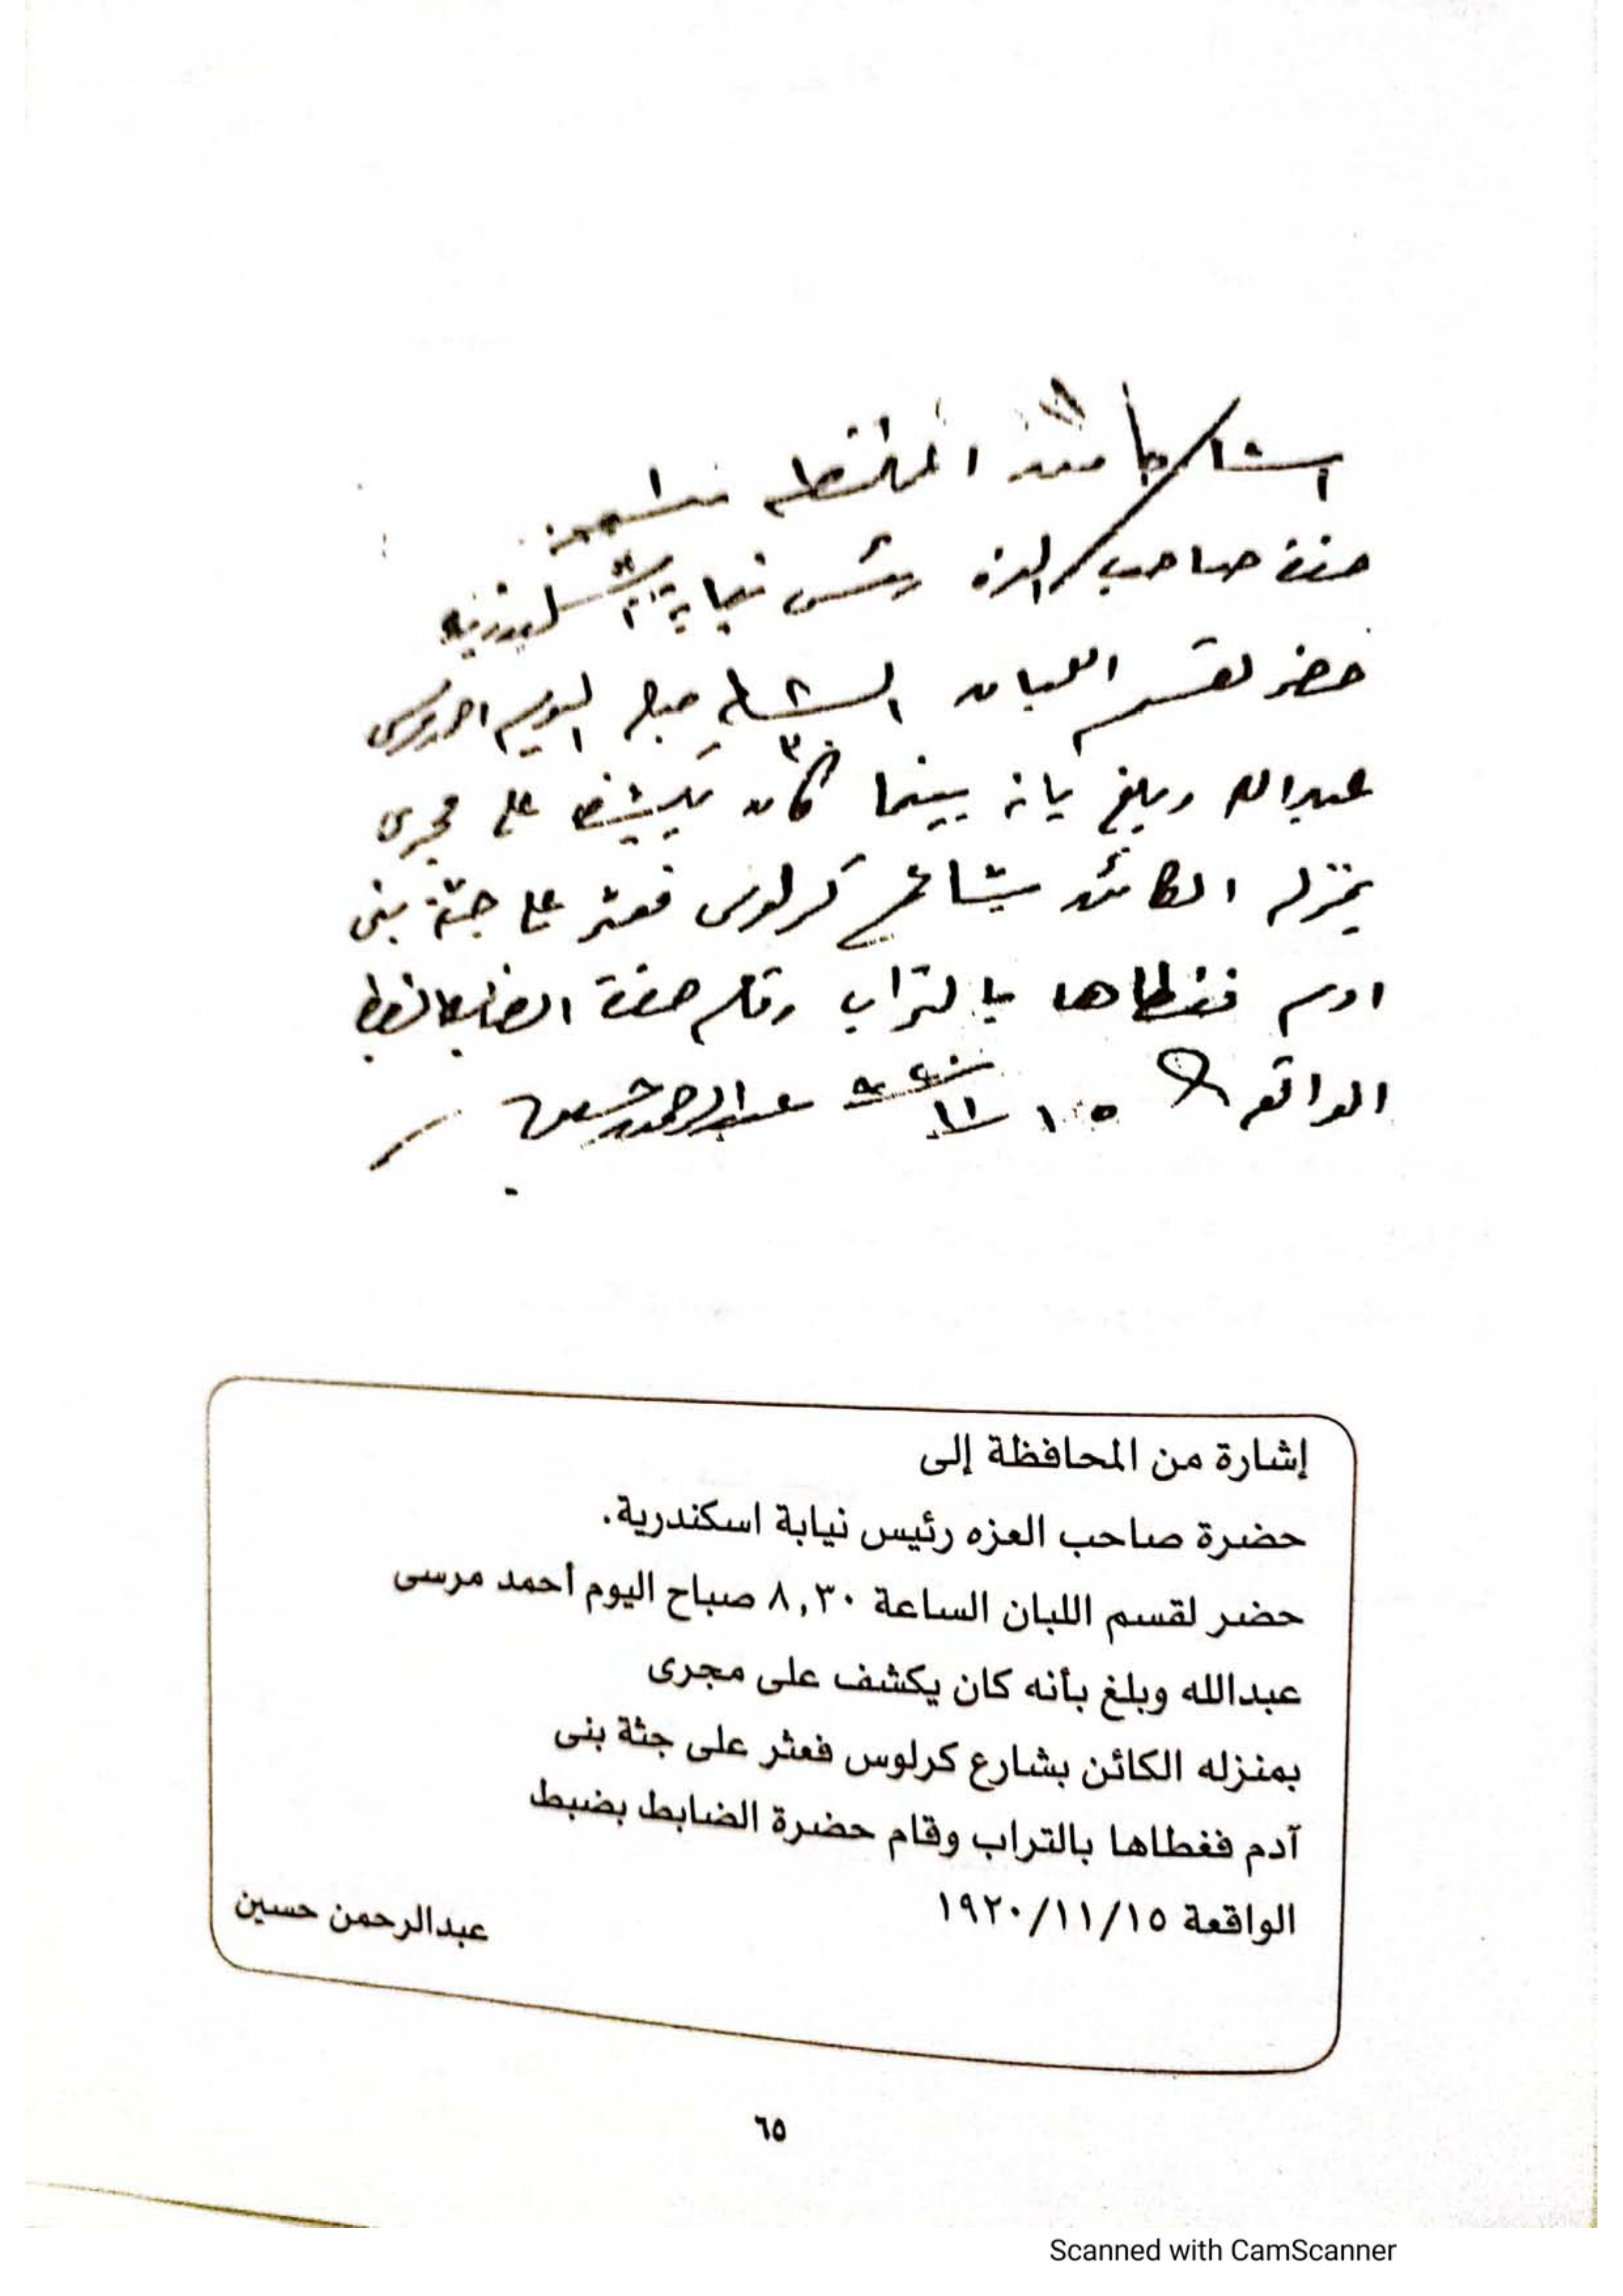 حضرة صاحب العزه رئيس نيابة اسكندرية
حضر لقسم اللبان الساعة صباح اليوم احمد مرسى
عبدالله وبلغ بانه بينما كان يكشف على مجرى
بمنزله الكائن بشارع كرلوس فعثر على جثة بنى
ادم فغطاها بالتراب وقام حضرة الضابط بضبط
الواقعه ١٥ ١١ ٩٢٠ عبدالرحمن حسين
إشارة من المحافظة إلى
حضرة صاحب العزه رئيس نيابة اسكندرية.
حضر لقسم اللبان الساعة ٨,٣٠ صباح اليوم أحمد مرسى
عبدالله وبلغ بأنه كان يكشف على مجرى
بمنزله الكائن بشارع كرلوس فعثر على جثة بنى
آدم فغطاها بالتراب وقام حضرة الضابط بضبط
الواقعة ١٩٢٠/١١/١٥
عبدالرحمن حسين
٦٥
Scanned with CamScanner